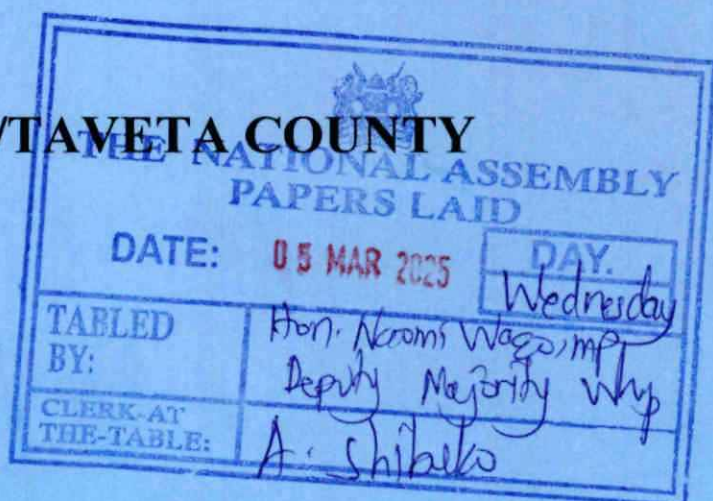 /TAVETA COUNTY
THE NATIONAL ASSEMBLY
PAPERS LAID
DATE: 05 MAR 2025 DAY.
Wednesday
TABLED BY: Hon. Naomi Waqo, MP
Deputy Majority Whip
CLERK-AT THE-TABLE: A. Shibuko